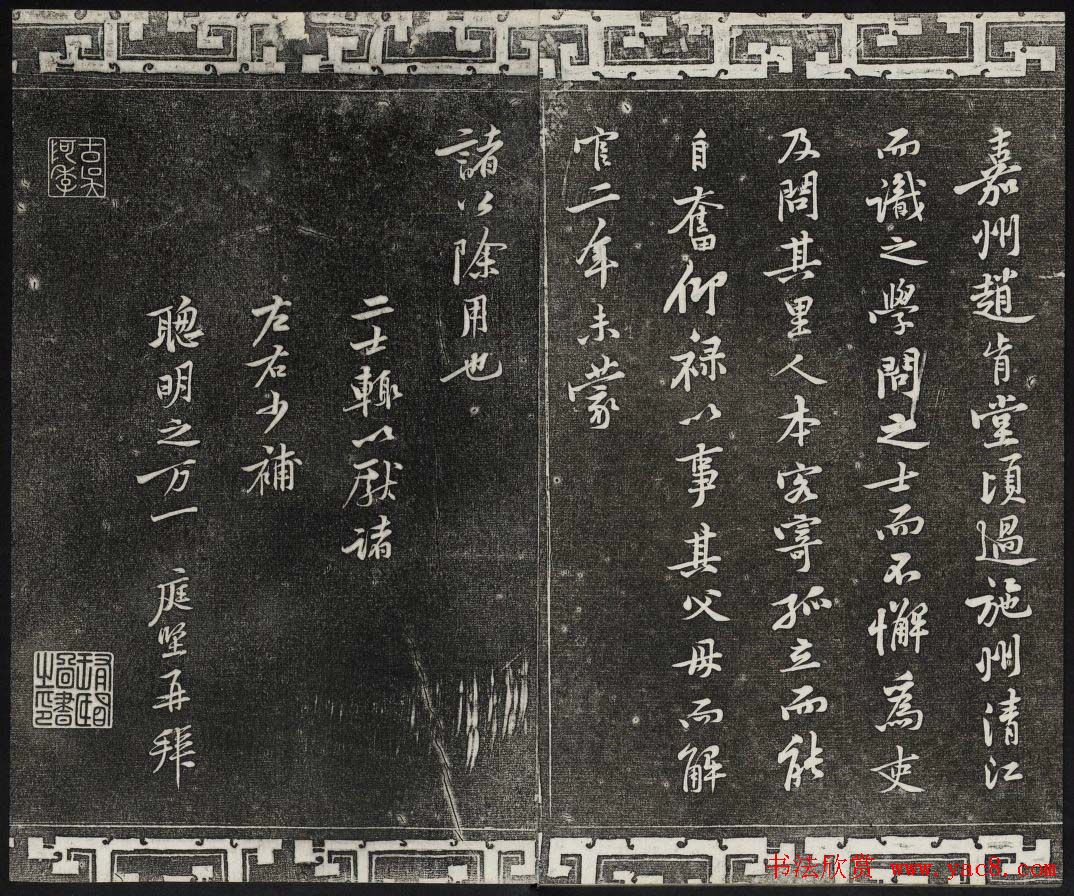 嘉州趙肯堂頃過施州清江
而識之學問之士而不懈為吏
及問其里人本客寄孤立而能
自奮仰禄以事其父母而解
官二年未蒙
諸公除用也
二士輙以猒諸
左右少補
聰明之万一 庭堅再拜
书法欣赏 www.yac8.com